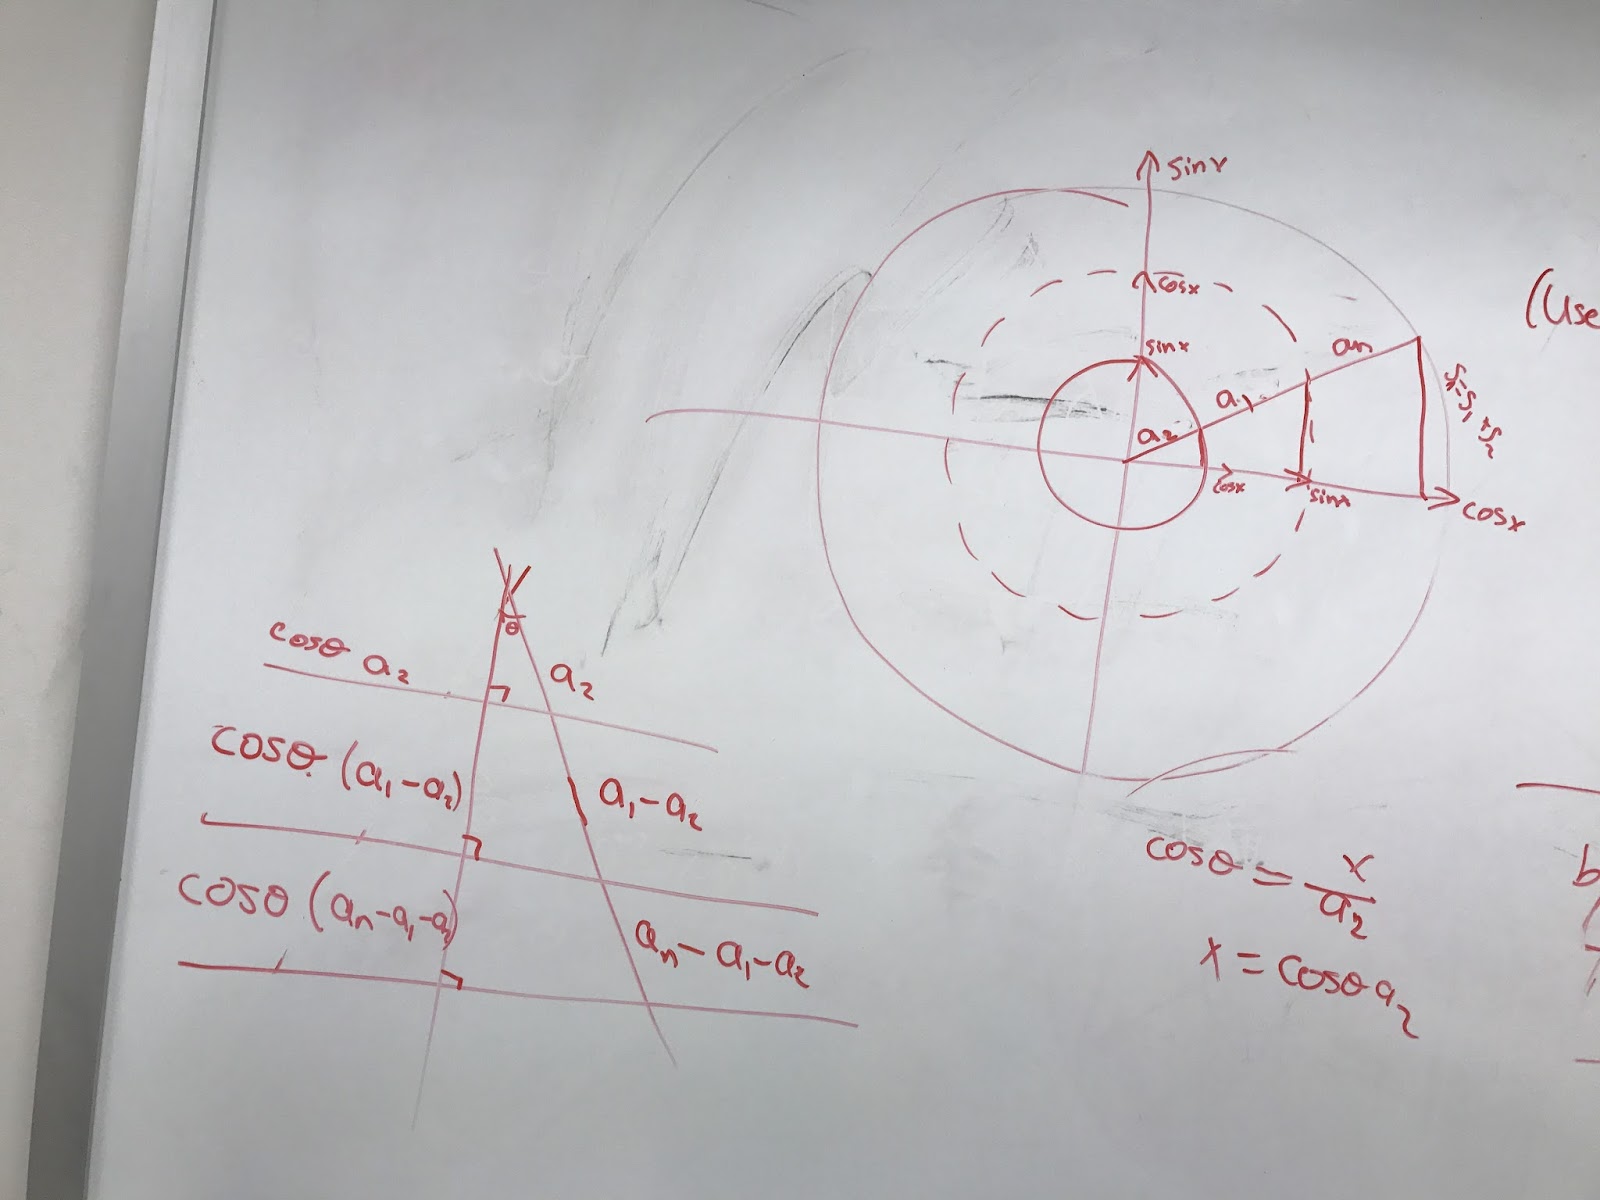 sinx
cosx
sinx
an
a1
a2
cosx
sinx
cosx
(Use
θ
cosθ a2
a2
cosθ (a1-a2)
a1-a2
cosθ (an-a1-a2)
an-a1-a2
cosθ = x/a2
x = cosθ a2
b